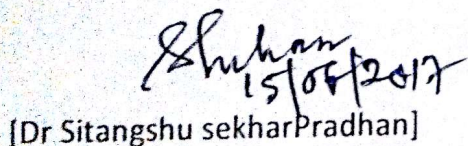 15/06/2017
[Dr Sitangshu sekharPradhan]